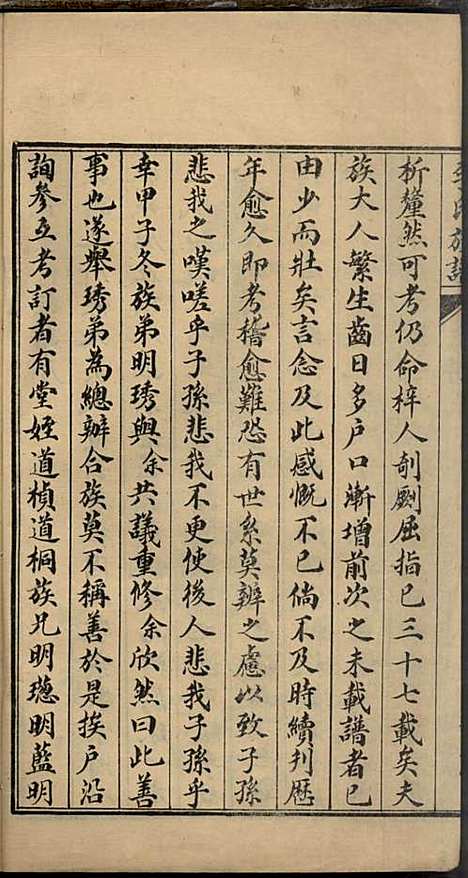 氏族譜
析釐然可考仍命梓人剞劂屈指已三十七載矣夫
族大人繁生齒日多户口漸增前次之未載譜者已
由少而壯矣言念及此感慨不已倘不及時續刋歷
年愈久即考稽愈難恐有世系莫辨之慮以致子孫
悲我之嘆嗟乎子孫悲我不更使後人悲我子孫乎
幸甲子冬族弟明琇與余共議重修余欣然曰此善
事也遂舉琇弟為總辦合族莫不稱善於是挨户沿
詢參互考訂者有堂姪道楨道桐族兄明璁明藍明